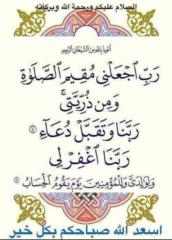 السلام عليكم ورحمة الله وبركاته
أعوذ بالله من الشيطان الرجيم
رَبِّ اجْعَلْنِي مُقِيمَ الصَّلَاةِ
وَمِن ذُرِّيَّتِي ۚ
رَبَّنَا وَتَقَبَّلْ دُعَاءِ
رَبَّنَا اغْفِرْ لِي
وَلِوَالِدَيَّ وَلِلْمُؤْمِنِينَ يَوْمَ يَقُومُ الْحِسَابُ
اسعد الله صباحكم بكل خير